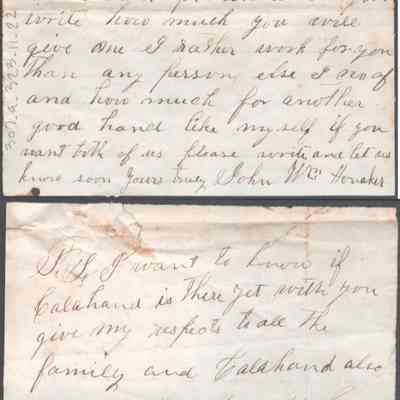 write how much you will
give one I rather work for you
than any person else I no of
and how much for another
good hand like my self if you
want both of us please write and let us
know soon yours truly John Wm Honaker
P.S. I want to know if
Calahand is there yet with you
give my respects to all the
family and Calahand also